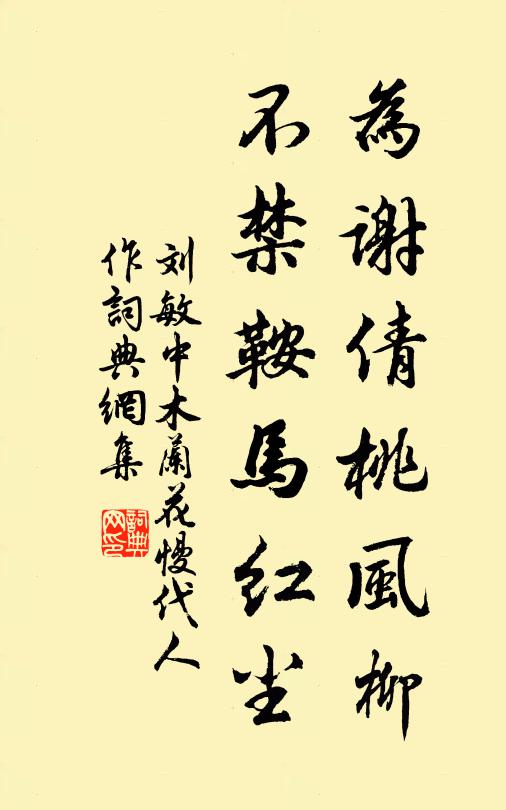 為谢倩桃風柳
不禁鞍馬红尘
刘敏中木蘭花慢代人
作詞典網集
詞典
网印